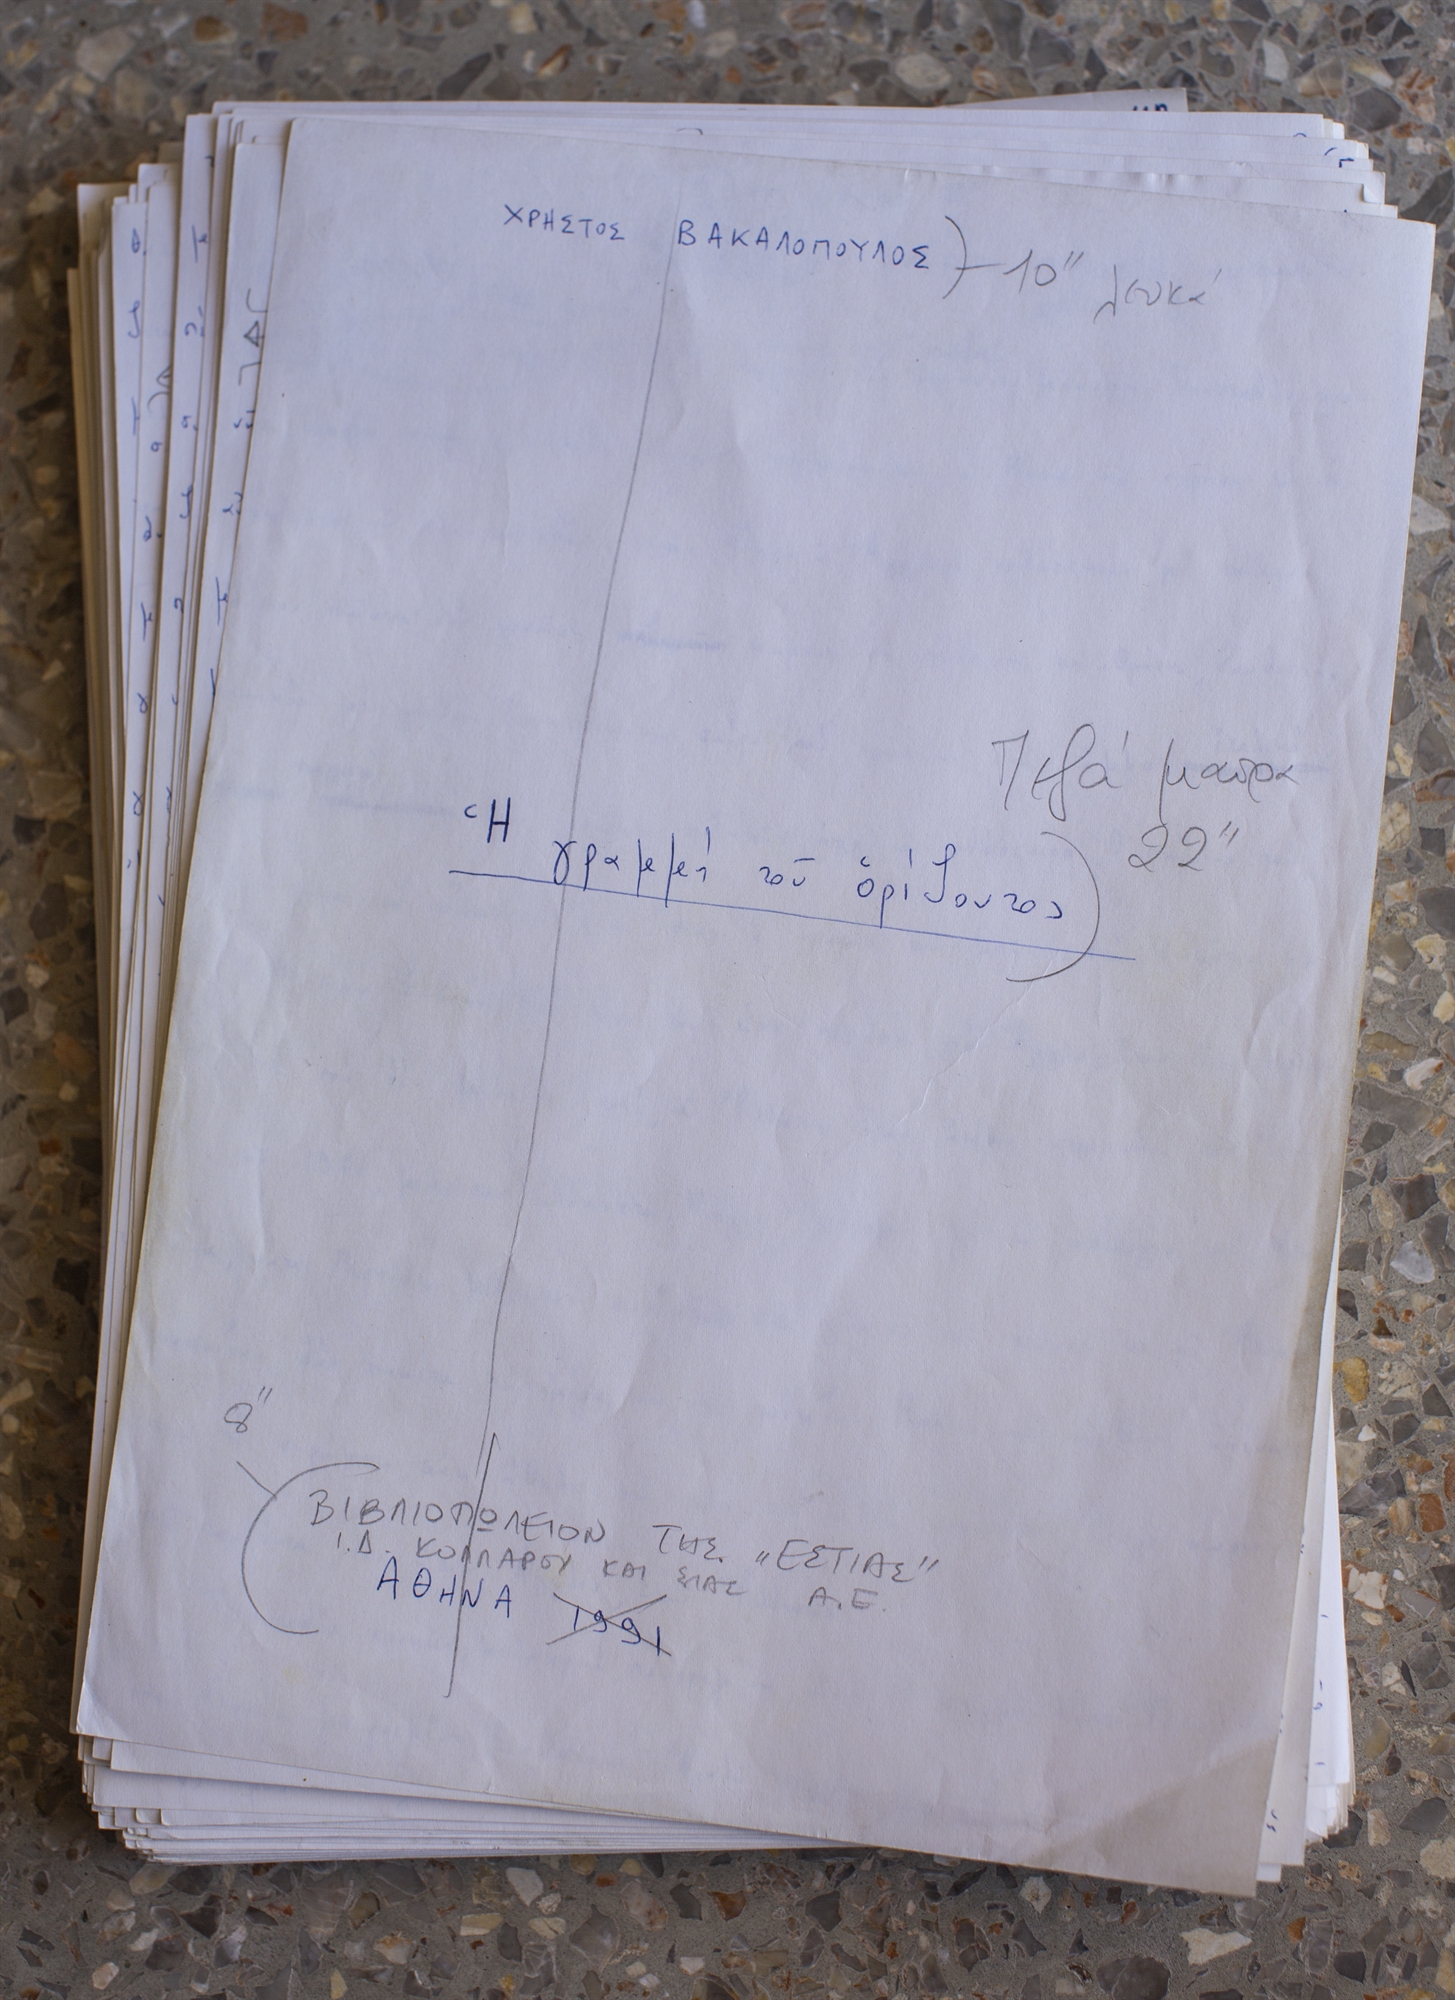 ΧΡΗΣΤΟΣ ΒΑΚΑΛΟΠΟΥΛΟΣ 10" λευκά
Πεζά μαύρα
22"
Ἡ γραμμή τοῦ ὁρίζοντος
8"
ΒΙΒΛΙΟΠΩΛΕΙΟΝ ΤΗΣ "ΕΣΤΙΑΣ"
Ι.Δ. ΚΟΛΛΑΡΟΥ ΚΑΙ ΣΙΑΣ Α.Ε.
ΑΘΗΝΑ 1991